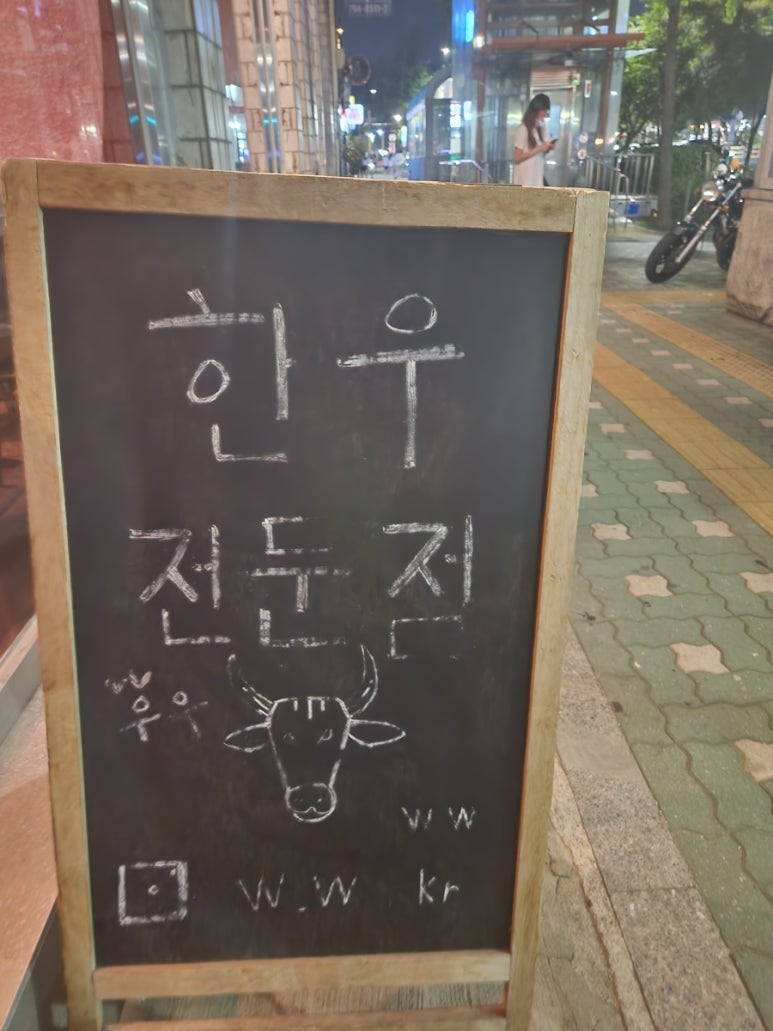 한우
전둔점
w
우우
w w
w.w kr